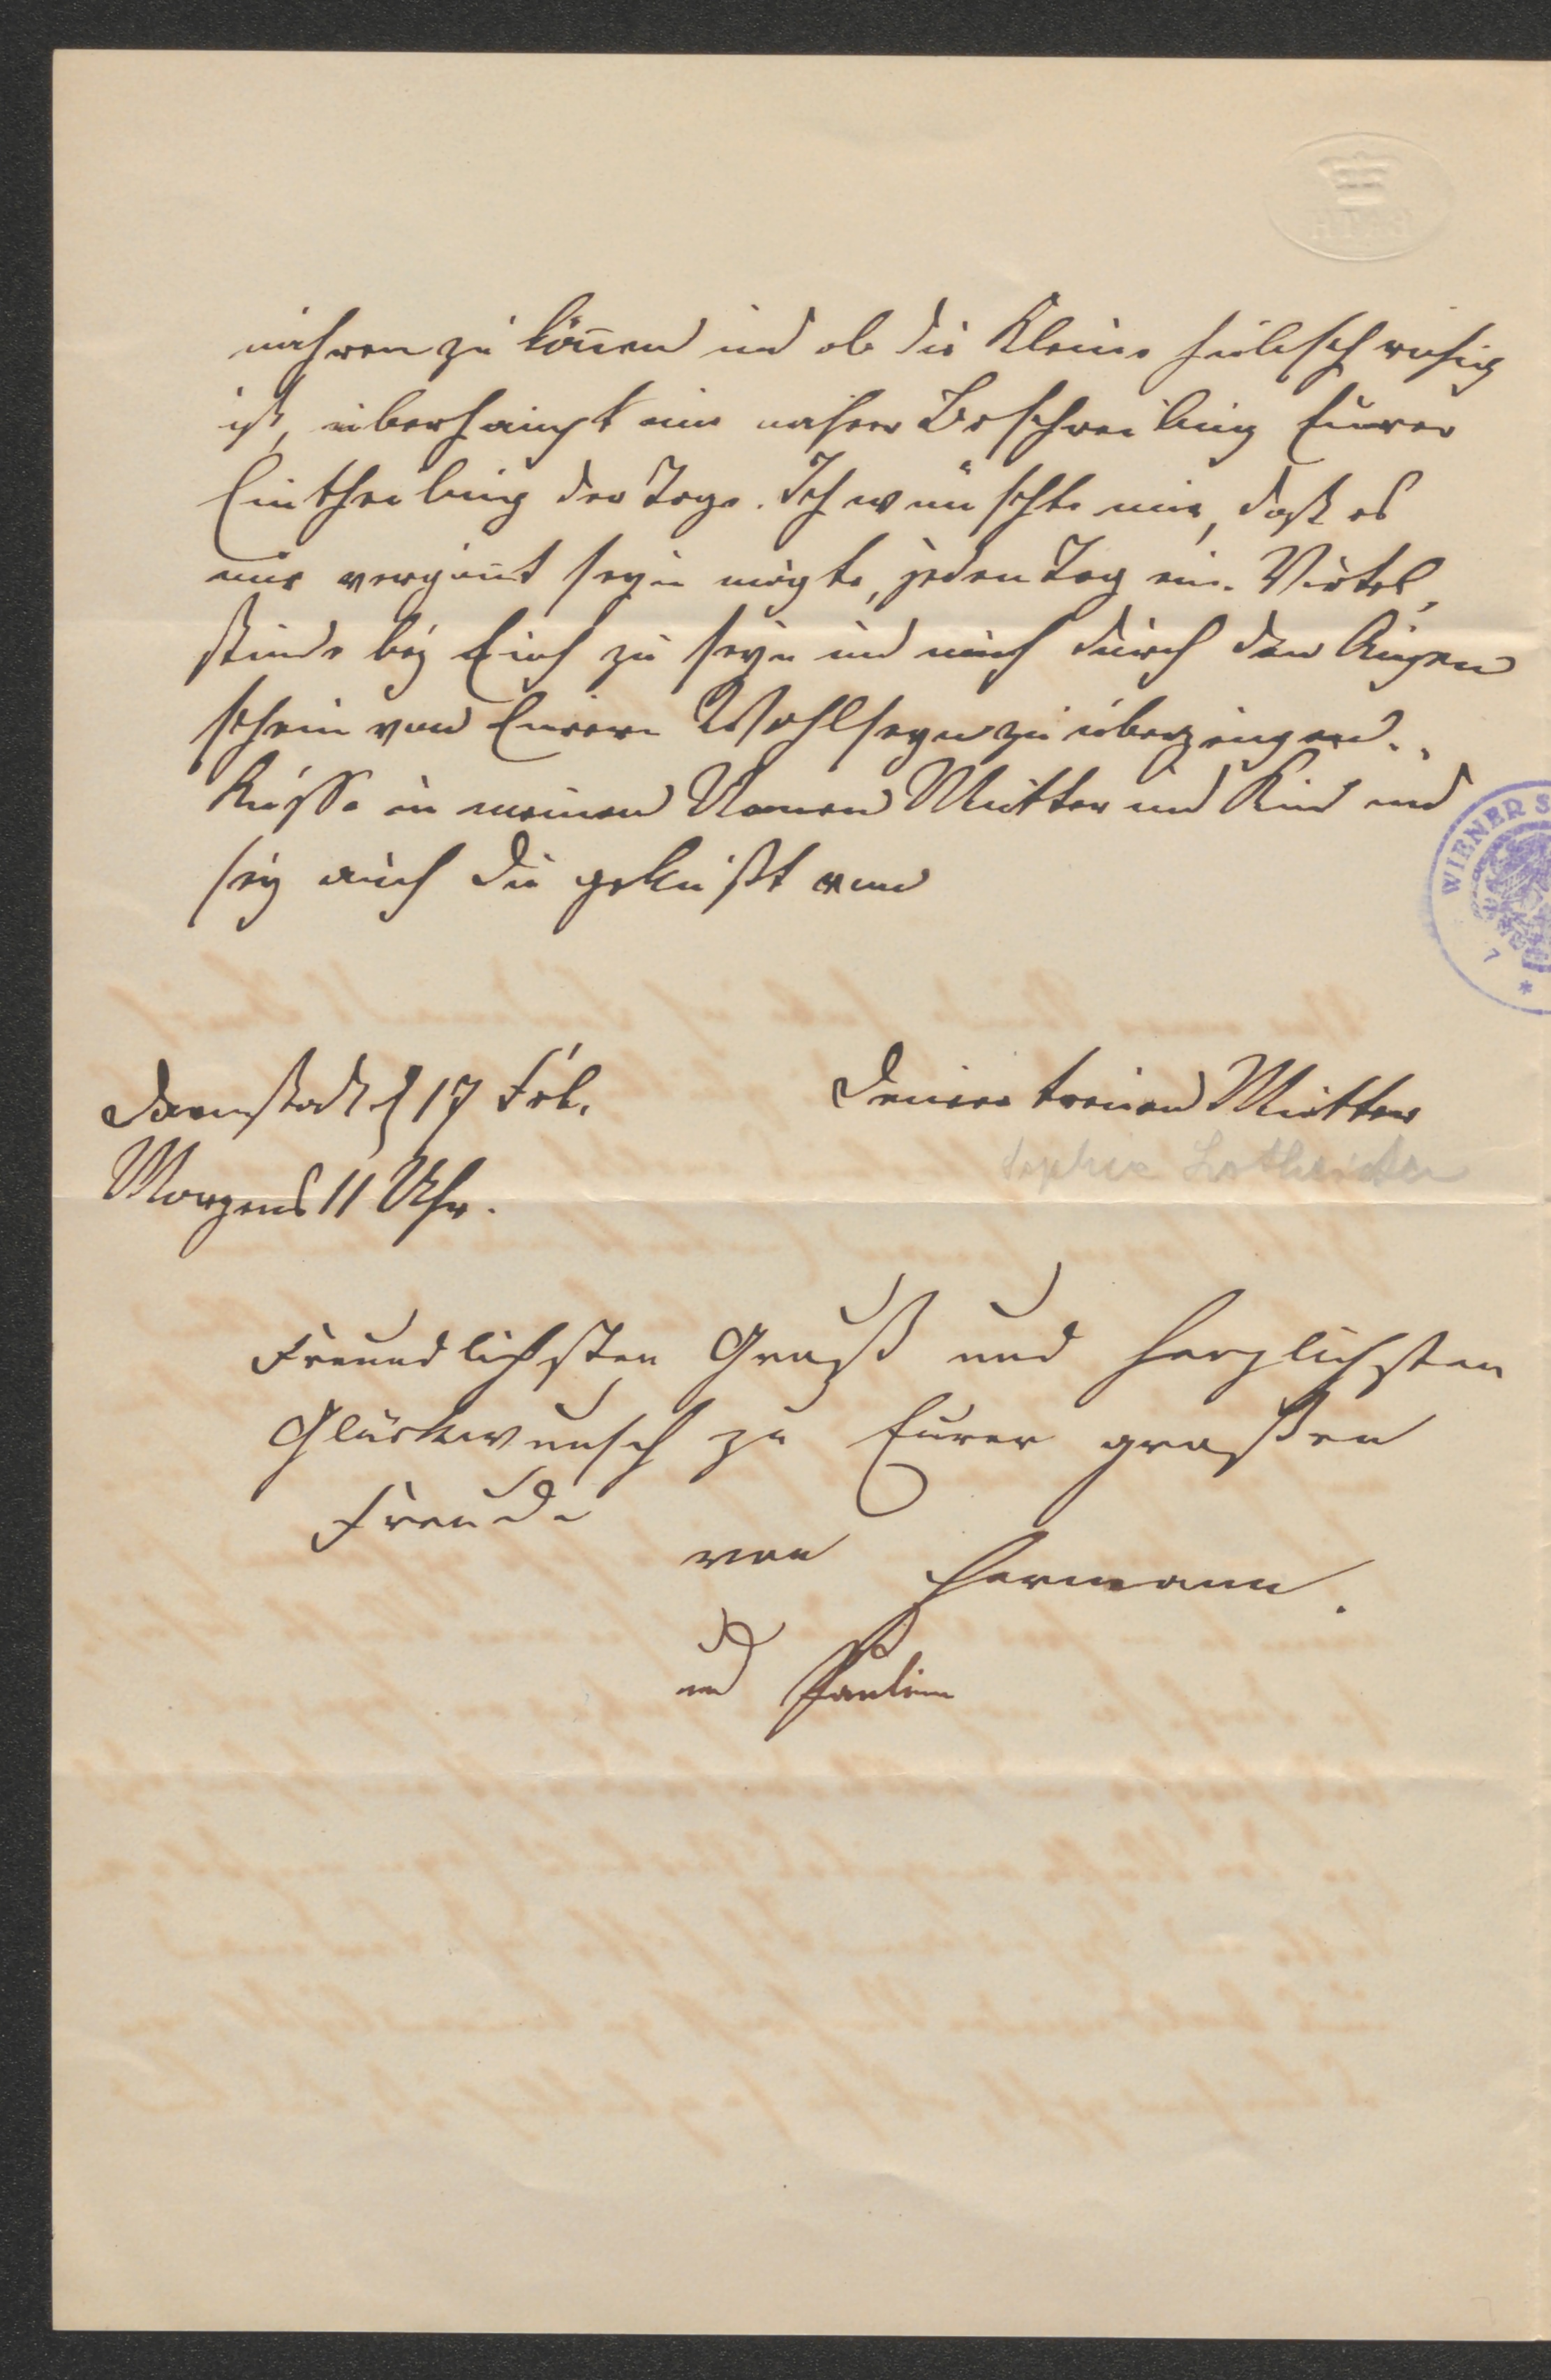 nähren zu können und ob die Kleine hübsch ruhig
ist, überhaupt eine nähere Beschreibung Eurer
Eintheilung der Tage. Ich wünschte mir, daß es
mir vergönnt seyn mögte, jeden Tag eine Viertel
stunde bey Euch zu seyn und mich durch den Augen
schein von Eurem Wohlseyn zu überzeugen.
Küsse in meinem Namen Mutter und Kind und
sey auch Du geküßt von
Deiner treuen Mutter
Darmstadt d 17 Feb.
Morgens 11 Uhr.
Sophie
Freundlichsten Gruß und herzlichsten
Glückwunsch zu Eurer großen
Freude
von Hermann.
und Pauline
WIENER S
7